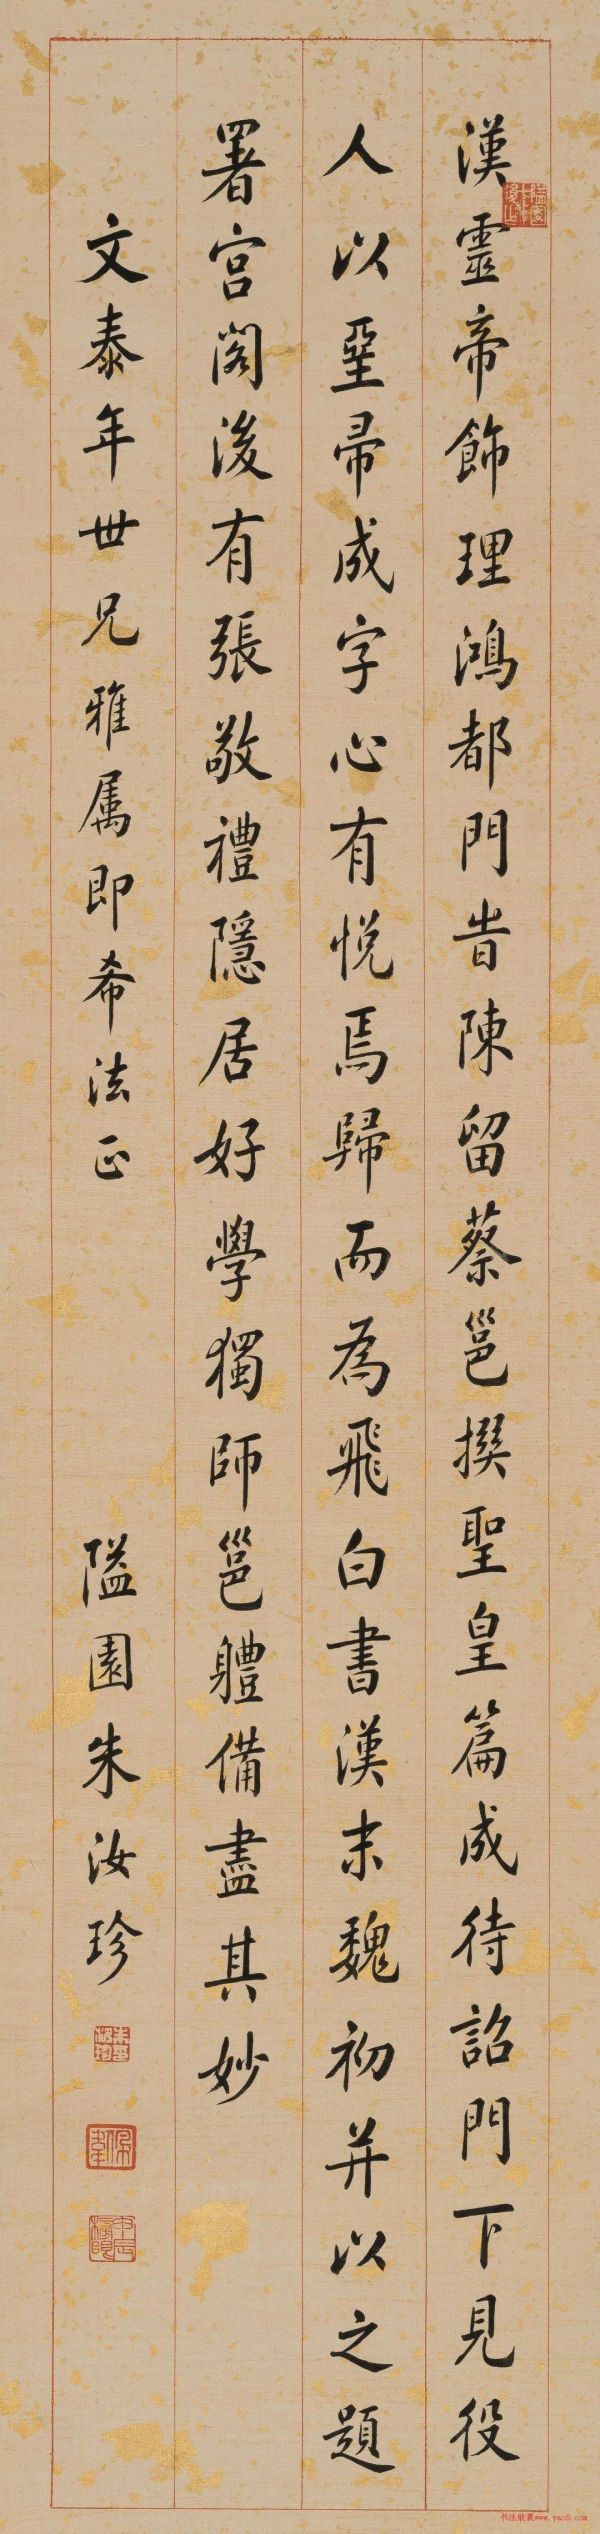 漢靈帝飾理鴻都門旹陳留蔡邕撰聖皇篇成待詔門下見役
人以堊帚成字心有悅焉歸而為飛白書漢末魏初并以之題
署宮閣後有張敬禮隱居好學獨師邕軆備盡其妙
文泰年世兄雅属即希法正
隘園朱汝珍
甲辰榜眼
书法欣赏www.yac8.com